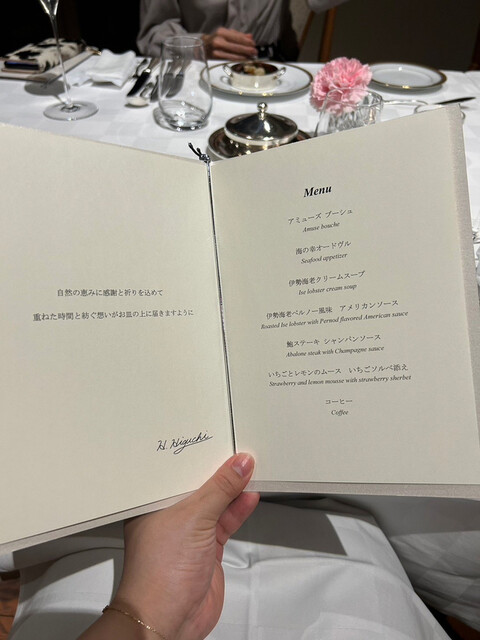 自然の恵みに感謝と祈りを込めて
重ねた時間と紡ぐ想いがお皿の上に届きますように
H. Higuchi
Menu
アミューズ ブーシュ
Amuse bouche
海の幸オードヴル
Seafood appetizer
伊勢海老クリームスープ
Ise lobster cream soup
伊勢海老ペルノー風味 アメリカンソース
Roasted Ise lobster with Pernod flavored American sauce
鮑ステーキ シャンパンソース
Abalone steak with Champagne sauce
いちごとレモンのムース いちごソルベ添え
Strawberry and lemon mousse with strawberry sherbet
コーヒー
Coffee